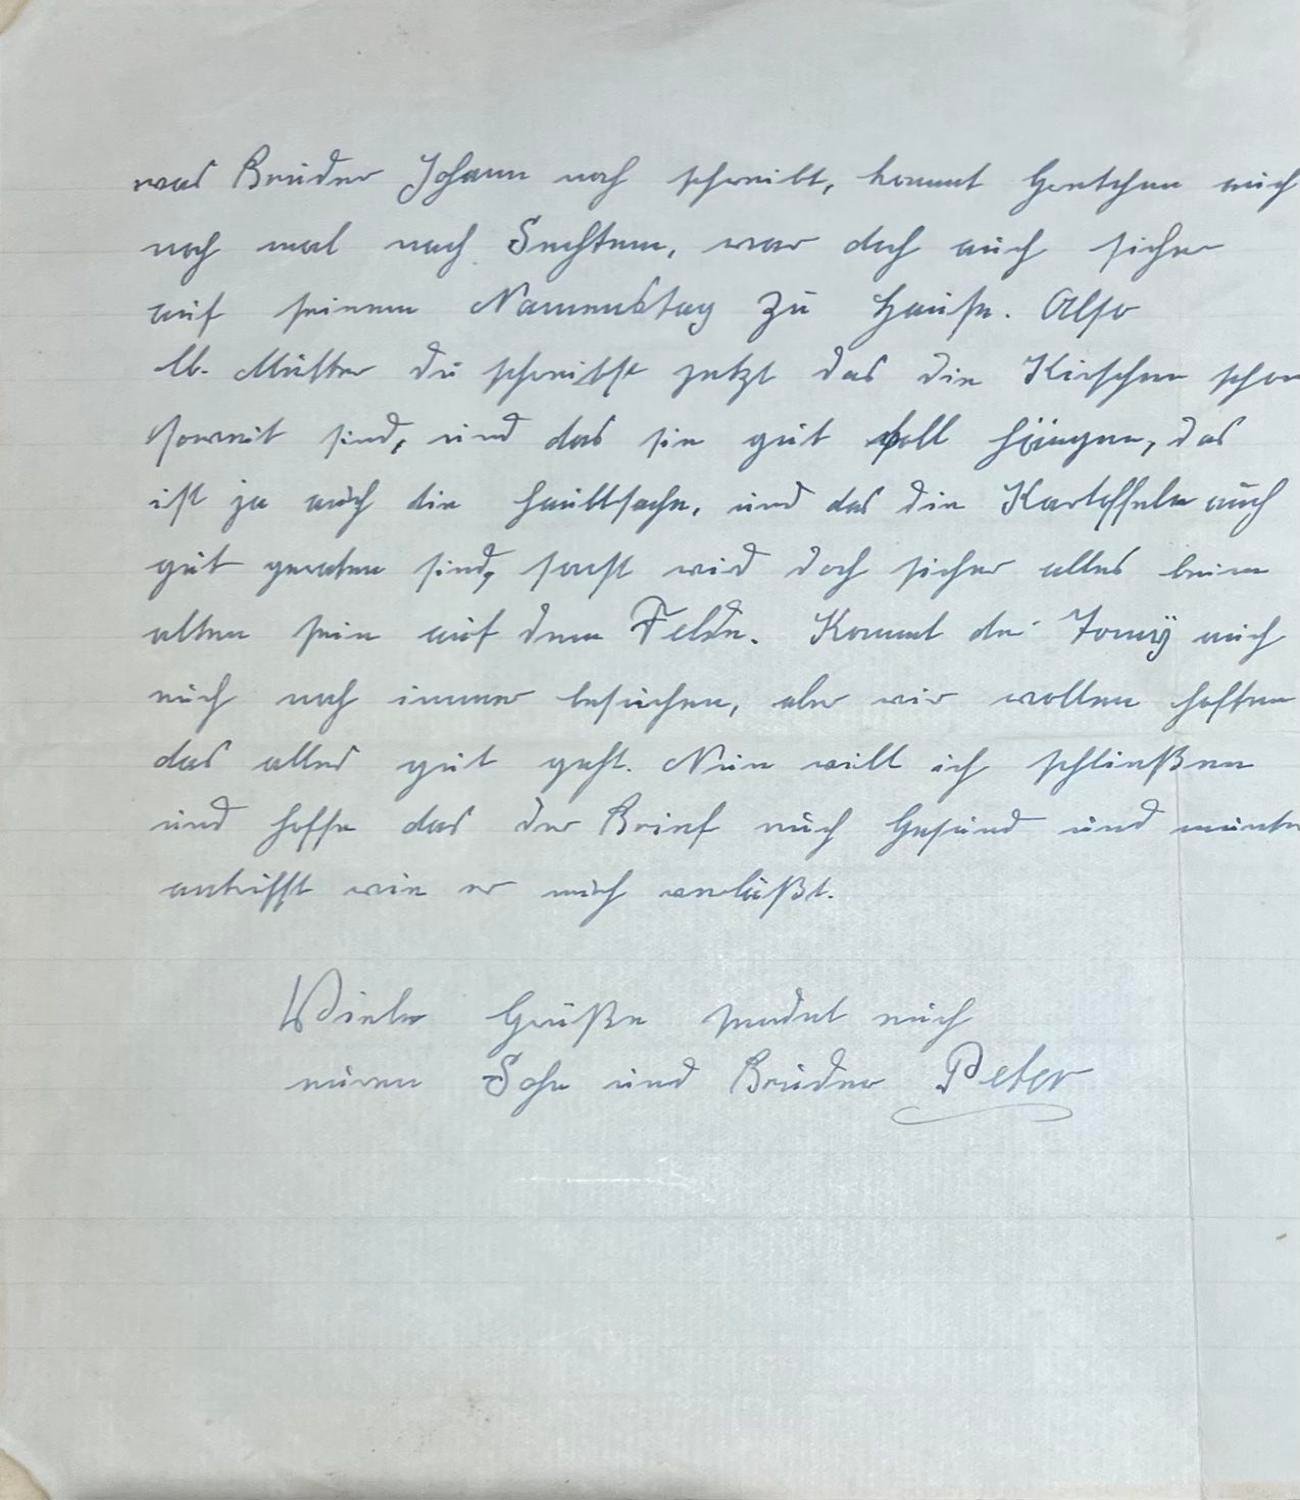 was Bruder Johann noch schreibt, kommt Gretchen auch
noch mal nach Sechtem, war doch auch sicher
auf seinem Namenstag zu Hause. Also
lb. Mutter du schreibst jetzt das die Kirschen schon
soweit sind, und das sie gut voll hängen, das
ist ja auch die haubtsache, und das die Kartoffeln auch
gut geraten sind, sonst wird doch sicher alles beim
alten sein auf dem Felde. Kommt der Tomy euch
noch immer besuchen, aber wir wollen hoffen
das alles gut geht. Nun will ich schließen
und hoffe das der Brief euch Gesund und munter
antrifft wie er mich verläßt.
Viele Grüße sendet euch
euren Sohn und Bruder Peter